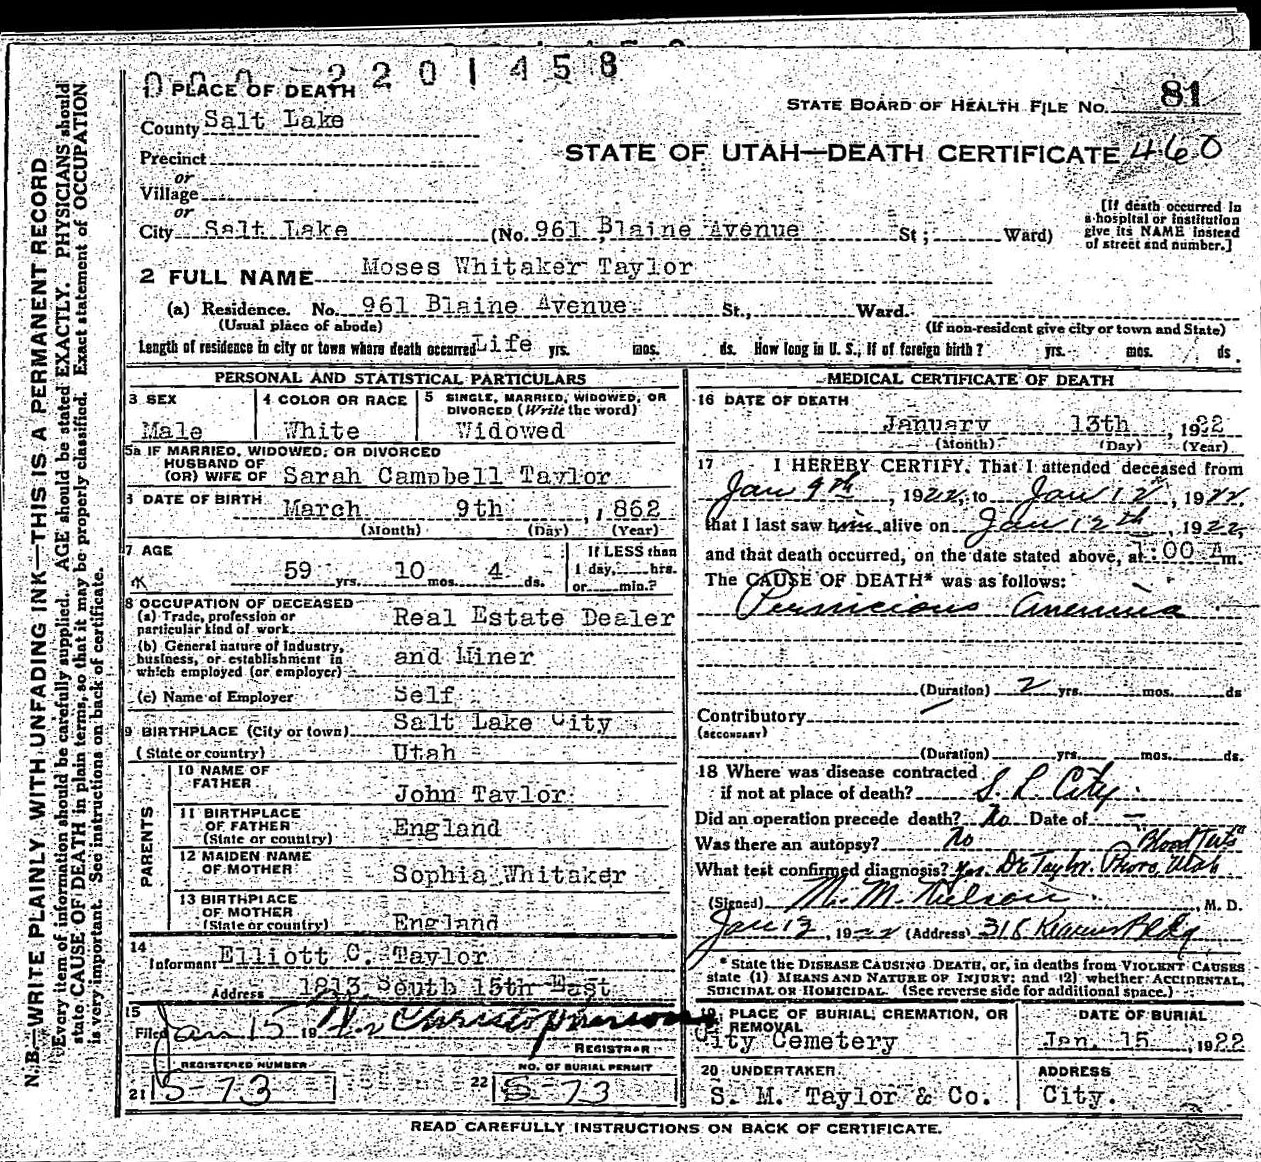 000 - 2201458
1 PLACE OF DEATH
STATE BOARD OF HEALTH FILE NO. 81
County Salt Lake
STATE OF UTAH—DEATH CERTIFICATE 460
Precinct
or
Village
or
[If death occurred in a hospital or institution give its NAME instead of street and number.]
City Salt Lake (No. 961 Blaine Avenue St; Ward)
2 FULL NAME Moses Whitaker Taylor
(a) Residence. No. 961 Blaine Avenue St., Ward.
(Usual place of abode) (If non-resident give city or town and State)
Length of residence in city or town where death occurred Life yrs. mos. ds. How long in U. S., if of foreign birth? yrs. mos. ds.
PERSONAL AND STATISTICAL PARTICULARS
3 SEX
Male
4 COLOR OR RACE
White
5 SINGLE, MARRIED, WIDOWED, OR DIVORCED (Write the word)
Widowed
5a IF MARRIED, WIDOWED, OR DIVORCED
HUSBAND OF
(OR) WIFE OF Sarah Campbell Taylor
6 DATE OF BIRTH March 9th, 1862
(Month) (Day) (Year)
7 AGE
59 yrs. 10 mos. 4 ds.
If LESS than
1 day, hrs.
or min.?
8 OCCUPATION OF DECEASED
(a) Trade, profession or
particular kind of work Real Estate Dealer
(b) General nature of Industry,
business, or establishment in
which employed (or employer) and Miner
(c) Name of Employer Self
9 BIRTHPLACE (City or town) Salt Lake City
(State or country) Utah
PARENTS
10 NAME OF
FATHER John Taylor
11 BIRTHPLACE
OF FATHER England
(State or country)
12 MAIDEN NAME
OF MOTHER Sophia Whitaker
13 BIRTHPLACE
OF MOTHER
(State or country) England
14
Informant Elliott C. Taylor
Address 1813 South 15th East
15
Filed Jan 15 19
REGISTRAR
REGISTERED NUMBER
21 S-73
NO. OF BURIAL PERMIT
22 S-73
MEDICAL CERTIFICATE OF DEATH
16 DATE OF DEATH
January 13th, 1922
(Month) (Day) (Year)
17 I HEREBY CERTIFY, That I attended deceased from
Jan 9th, 1922, to Jan 12, 1922
that I last saw him alive on Jan 12th, 1922,
and that death occurred, on the date stated above, at 1:00 A m.
The CAUSE OF DEATH* was as follows:
Pernicious Anemia
(Duration) 2 yrs. mos. ds
Contributory
(SECONDARY)
(Duration) yrs. mos. ds.
18 Where was disease contracted
if not at place of death? S. L. City.
Did an operation precede death? No Date of —
Was there an autopsy? No "Blood Tests"
What test confirmed diagnosis? yes. Dr Taylor. Provo, Utah
(Signed) N. M. Nelson, M. D.
Jan 13, 1922 (Address) Bldg
* State the DISEASE CAUSING DEATH, or, in deaths from VIOLENT CAUSES
state (1) MEANS AND NATURE OF INJURY; and (2) whether ACCIDENTAL,
SUICIDAL OR HOMICIDAL. (See reverse side for additional space.)
19 PLACE OF BURIAL, CREMATION, OR REMOVAL
City Cemetery
DATE OF BURIAL
Jan. 15, 1922
20 UNDERTAKER
S. M. Taylor & Co.
ADDRESS
City.
READ CAREFULLY INSTRUCTIONS ON BACK OF CERTIFICATE.
N. B.—WRITE PLAINLY, WITH UNFADING INK—THIS IS A PERMANENT RECORD
Every item of information should be carefully supplied. AGE should be stated EXACTLY. PHYSICIANS should
state CAUSE OF DEATH in plain terms, so that it may be properly classified. Exact statement of OCCUPATION
is very important. See instructions on back of certificate.